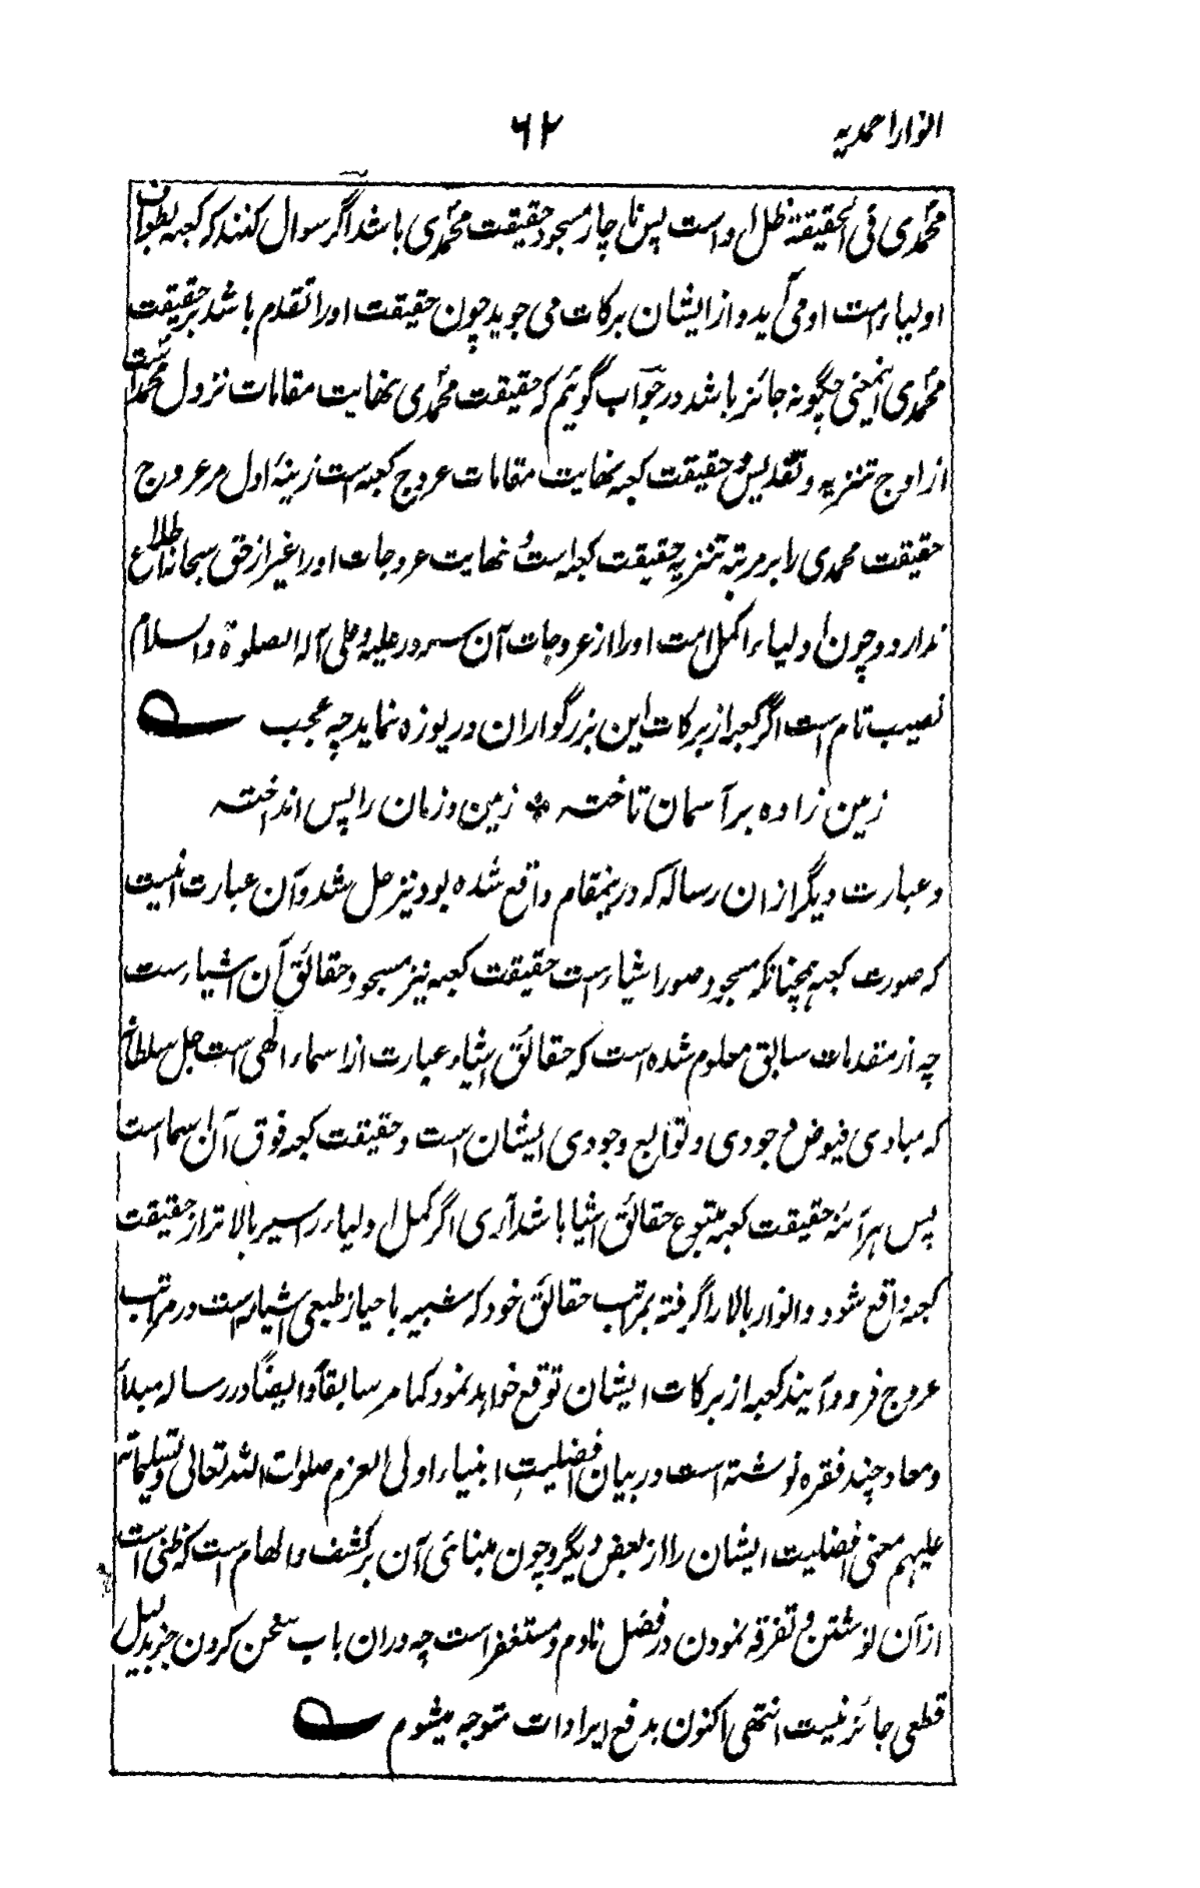 انوار احمدیہ
۶۲
محمّدی فی الحقیقۃ ظل اوست پس ناچار مسجود حقیقت محمّدی باشد اگر سوال کنند کہ کعبہ بطواف
اولیاء است او می آید و از ایشان برکات می جوید چون حقیقت اورا تقدم باشد بر حقیقت
محمّدی اینمعنی چگونہ جائز باشد در جواب گوئیم کہ حقیقت محمّدی نہایت مقامات نزول محمّد است
از اوج تنزیہ و تقدیس و حقیقت کعبہ نہایت مقامات عروج کعبہ است زینۂ اول مر عروج
حقیقت محمدی را بر مرتبہ تنزیہ حقیقت کعبہ است و نہایت عروجات اورا غیر از حق سبحانہ اطلاع
ندارد و چون اولیاء اکمل امت اورا از عروجات آن سرور علیہ و علی آلہ الصلوۃ والسلام
نصیب تام است اگر کعبہ از برکات این بزرگواران دریوزہ نماید چہ عجب
زمین زادہ بر آسمان تاختہ * زمین و زمان را پس انداختہ
و عبارت دیگر ازان رسالہ کہ درینمقام واقع شدہ بود نیز حل شد و آن عبارت اینست
کہ صورت کعبہ ہمچنانکہ مسجود صور اشیاء است حقیقت کعبہ نیز مسجود حقائق آن اشیاء است
چہ از مقدمات سابق معلوم شدہ است کہ حقائق اشیاء عبارت از اسماء الٰہی است جل سلطانہ
کہ مبادی فیوض وجودی و توابع وجودی ایشان است و حقیقت کعبہ فوق آن اسما است
پس ہر آئنہ حقیقت کعبہ متبوع حقائق اشیا باشد آری اگر کمل اولیاء را سیر بالاتر از حقیقت
کعبہ واقع شود و انوار بالا را گرفتہ بمراتب حقائق خود کہ شبیہ باحیاز طبعی اشیاء است در مراتب
عروج فرود آیند کعبہ از برکات ایشان توقع خواہد نمود کما مر سابقاً وایضاً در رسالہ مبدأ
و معاد چند فقرہ نوشتہ است در بیان افضلیت انبیاء اولی العزم صلوات اللہ تعالی و تسلیماتہ
علیہم معنی افضلیت ایشان را از بعض دیگر و چون مبنائی آن بر کشف و الہام است کہ ظنی است
از آن نوشتن و تفرقہ نمودن در فضل نادم و مستغفر است چہ دران باب سخن کردن جز بدلیل
قطعی جائز نیست انتھی اکنون بدفع ایرادات متوجہ میشوم